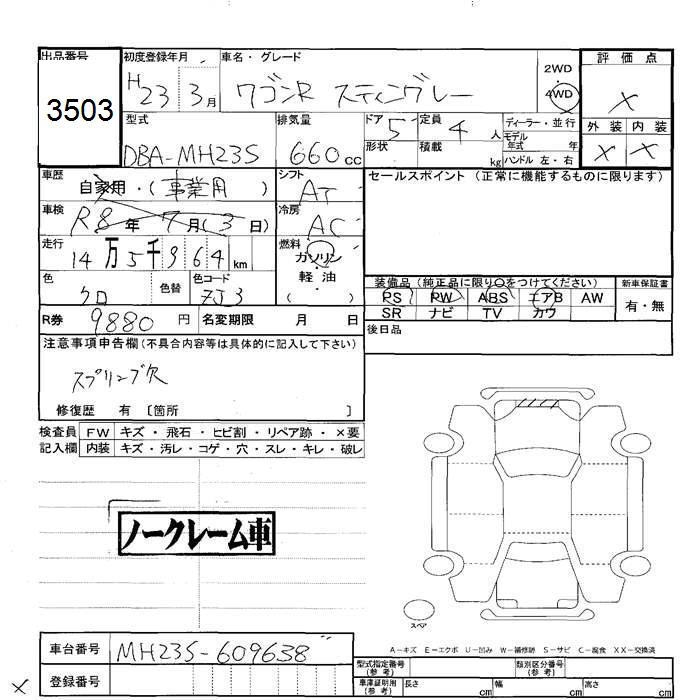 出品番号 初度登録年月 車名・グレード 2WD 評価点
3503 H23 3月 ワゴンR スティングレー 4WD ×
型式 排気量 ドア 5 定員 4人 ディーラー・並行 外装 内装
DBA-MH23S 660cc 形状 積載 kg モデル年式 年 × ×
ハンドル 左・右
車歴 自家用・(事業用) シフト AT セールスポイント (正常に機能するものに限ります)
車検 R8年7月(3日) 冷房 AC
走行 14万5千964km 燃料 ガソリン・軽・油 ( )
色 クロ 色替 色コード ZJ3 装備品 (純正品に限り○をつけてください) 新車保証書
PS PW ABS エアB AW 有・無
R券 9880円 名変期限 月 日 SR ナビ TV カワ
注意事項申告欄(不具合内容等は具体的に記入して下さい) 後日品
スプリング欠
修復歴 有 〔箇所 〕
検査員 FW キズ・飛石・ヒビ割・リペア跡・×要
記入欄 内装 キズ・汚レ・コゲ・穴・スレ・キレ・破レ
ノークレーム車
スペア
A-キズ E-エクボ U-凹み W-補修跡 S-サビ C-腐食 XX-交換済
車台番号 MH23S-609638
型式指定番号(参考) 類別区分番号(参考)
登録番号 車庫証明用(参考) 長さ cm 幅 cm 高さ cm
×